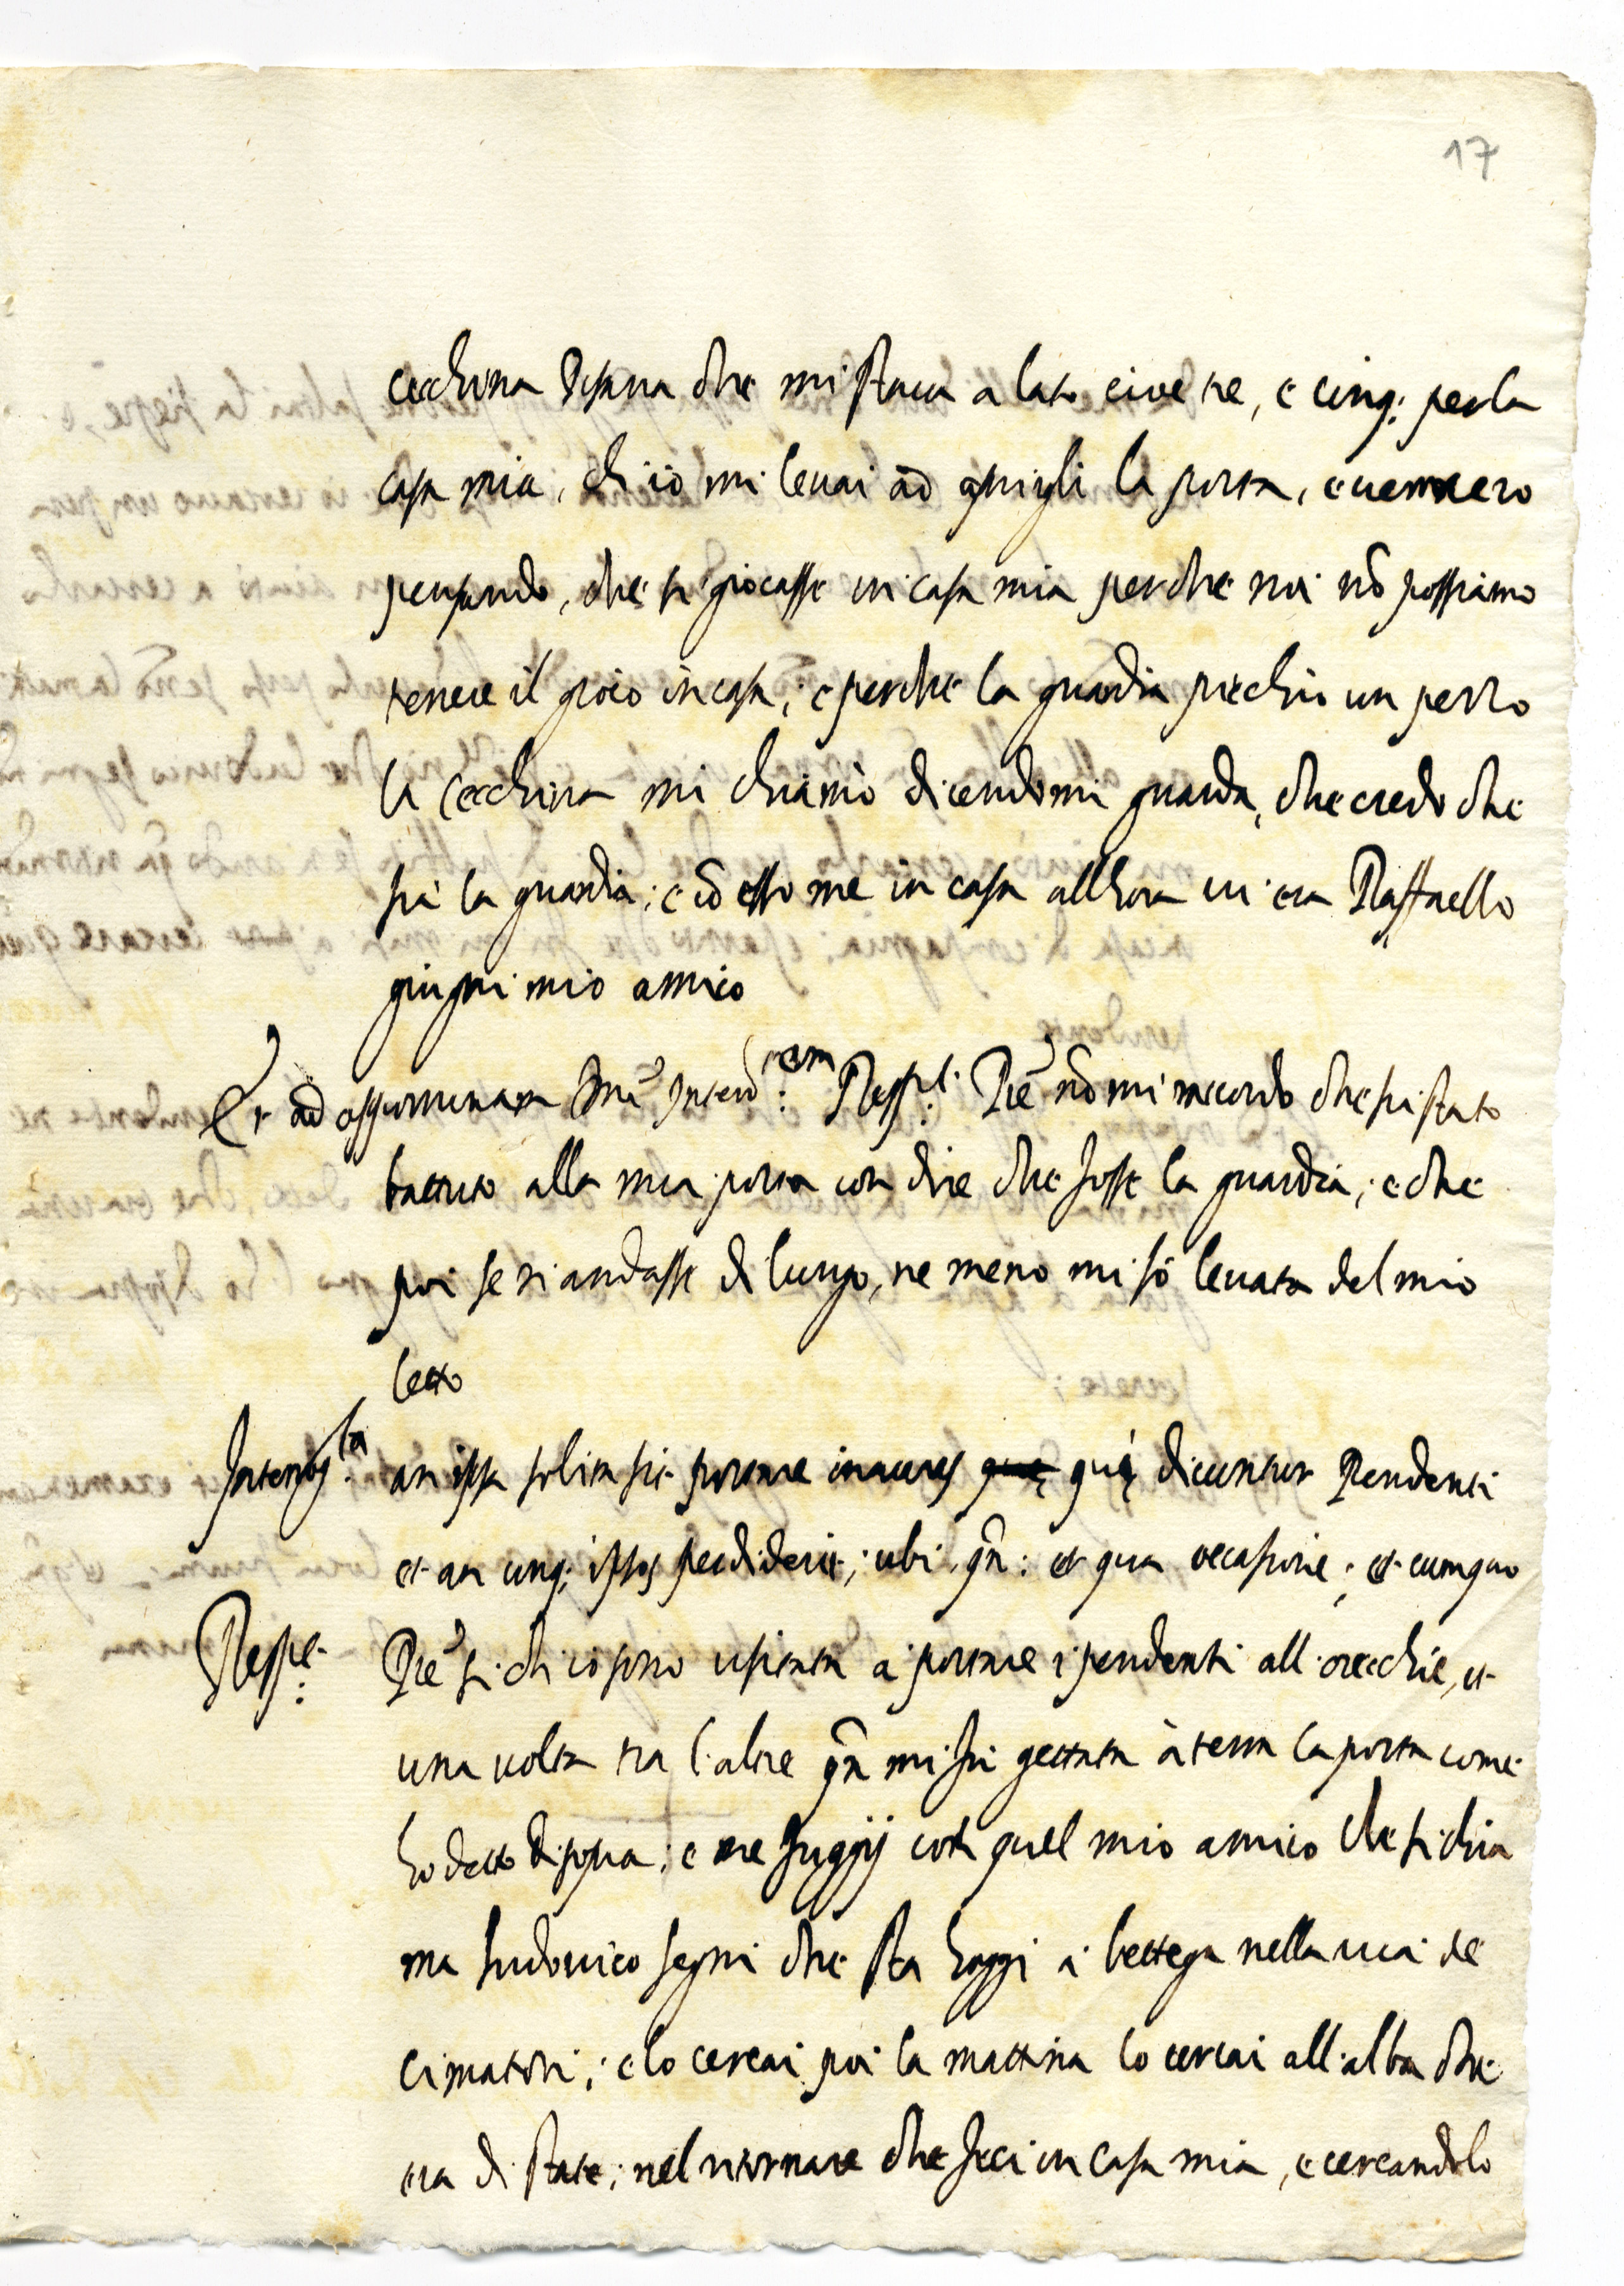 17
Cecchina Pisana che mi staua a lato cive tre, e cinq; per la
casa mia, ch'io mi leuai ad aprirgli la porta, e uennero
pensando, che si giocasse in casa mia perche noi nõ possiamo
tenere il gioco in casa; e perche la guardia picchiò un pezzo
la Cecchina mi chiamò dicendomi guarda, che credo che
sia la guardia; e cõ esso me in casa all'hora ui era Raffaello
giugni mio amico
Et ad opportunam Intern:em Resp.t: Rè nõ mi raccordo che sia stato
battuto alla mia porta con dire che fosse la guardia; e che
poi se ni andasse di lungo, ne meno mi sò leuata del mio
letto
Interog:ta an ipsa solita sit portare inaures que quę dicuntur Pendenti
et an unq; ipsos perdiderit; ubi qñ: et qua occasione; et cum quo
Resp.t: Rè si ch'io sono usitata a portare i pendenti all'orecchie, et
una uolta tra l'altre qñ mi fu gettata à terra la porta come
ho detto di sopra; e me fuggij con quel mio amico che si chia
ma Ludouico segni che sta hoggi à bottega nella uia de
Cimatori; e lo cercai poi la mattina lo cercai all'alba che
era di state; nel ritornare che feci in casa mia, e cercandolo